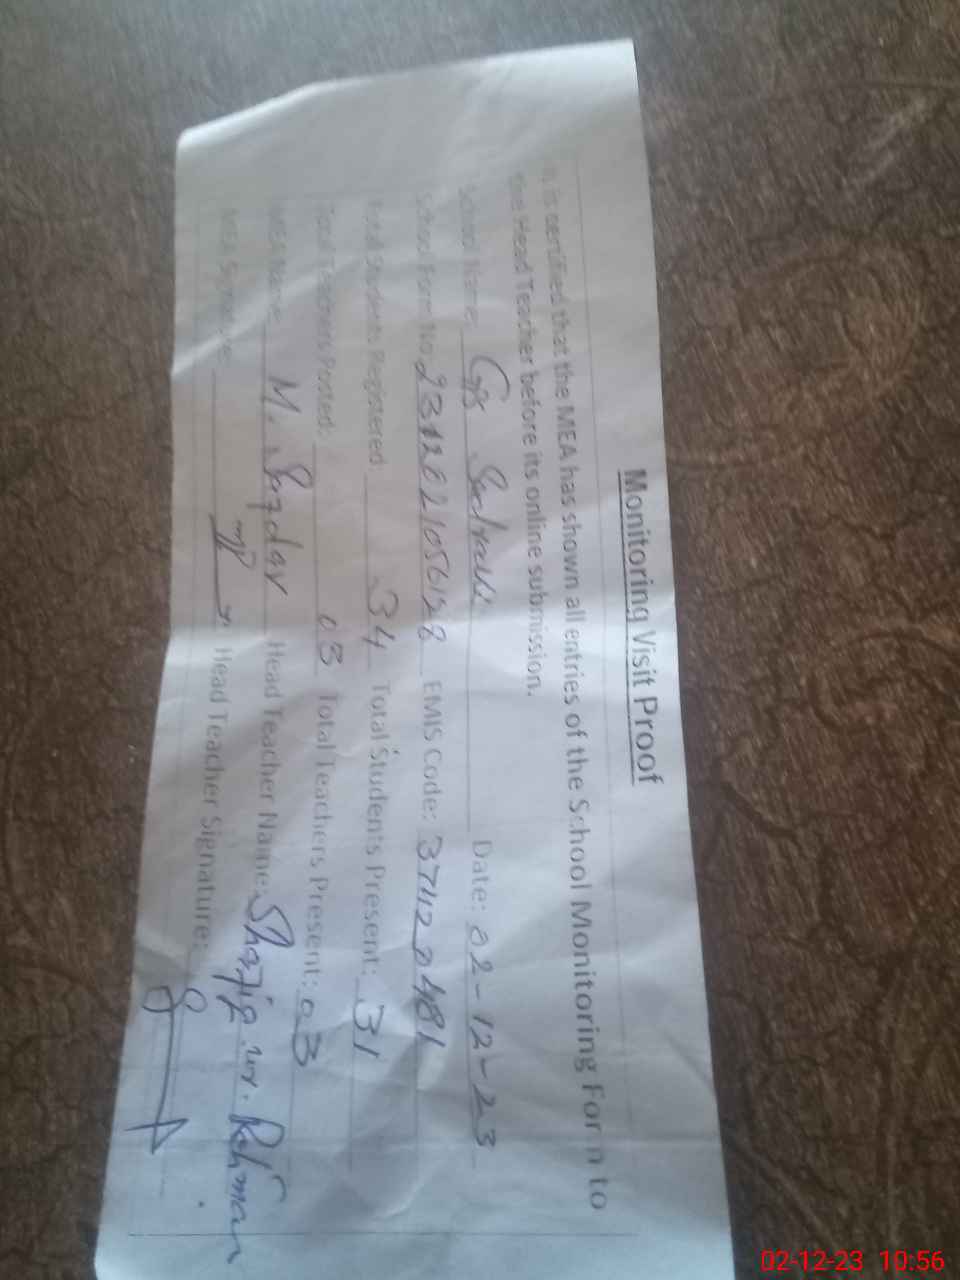 Monitoring Visit Proof
It is certified that the MEA has shown all entries of the School Monitoring Form to
the Head Teacher before its online submission.
School Name: GPS Date: 02-12-23
School Form No. 2312021056128 EMIS Code: 37120481
Total Students Registered: 34 Total Students Present: 31
Total Teachers Posted: 03 Total Teachers Present: 03
MEA Name: M. Safdar Head Teacher Name: Shafiq ur Rehman
MEA Signature: Head Teacher Signature:
02-12-23 10:56